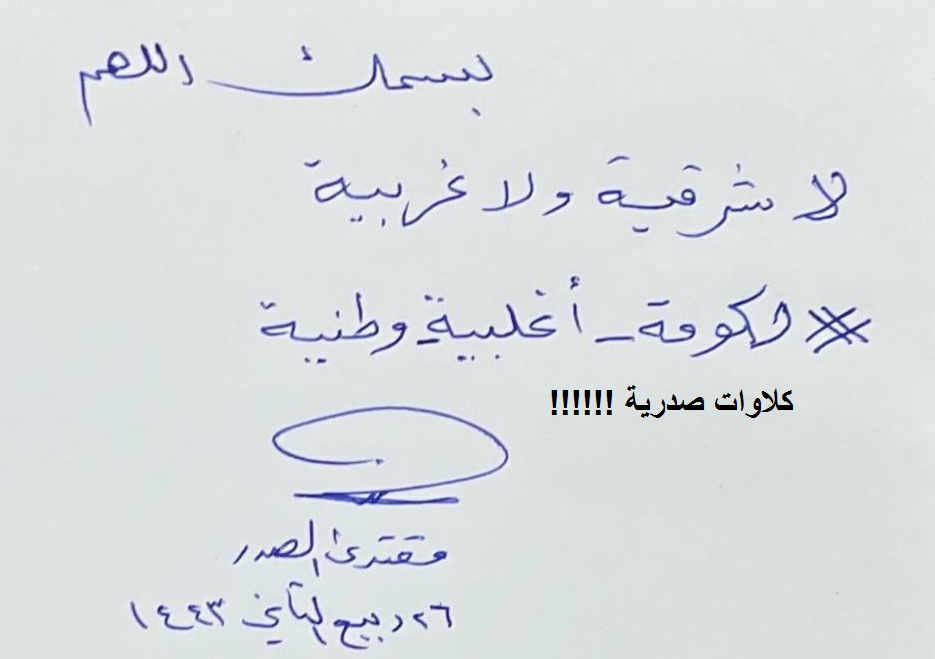 بسمك اللهم
لا شرقية ولا غربية
حكومة - أغلبية وطنية
كلاوات صدرية !!!!!!
مقتدى الصدر
٢٦ ربيع الثاني ١٤٤٣